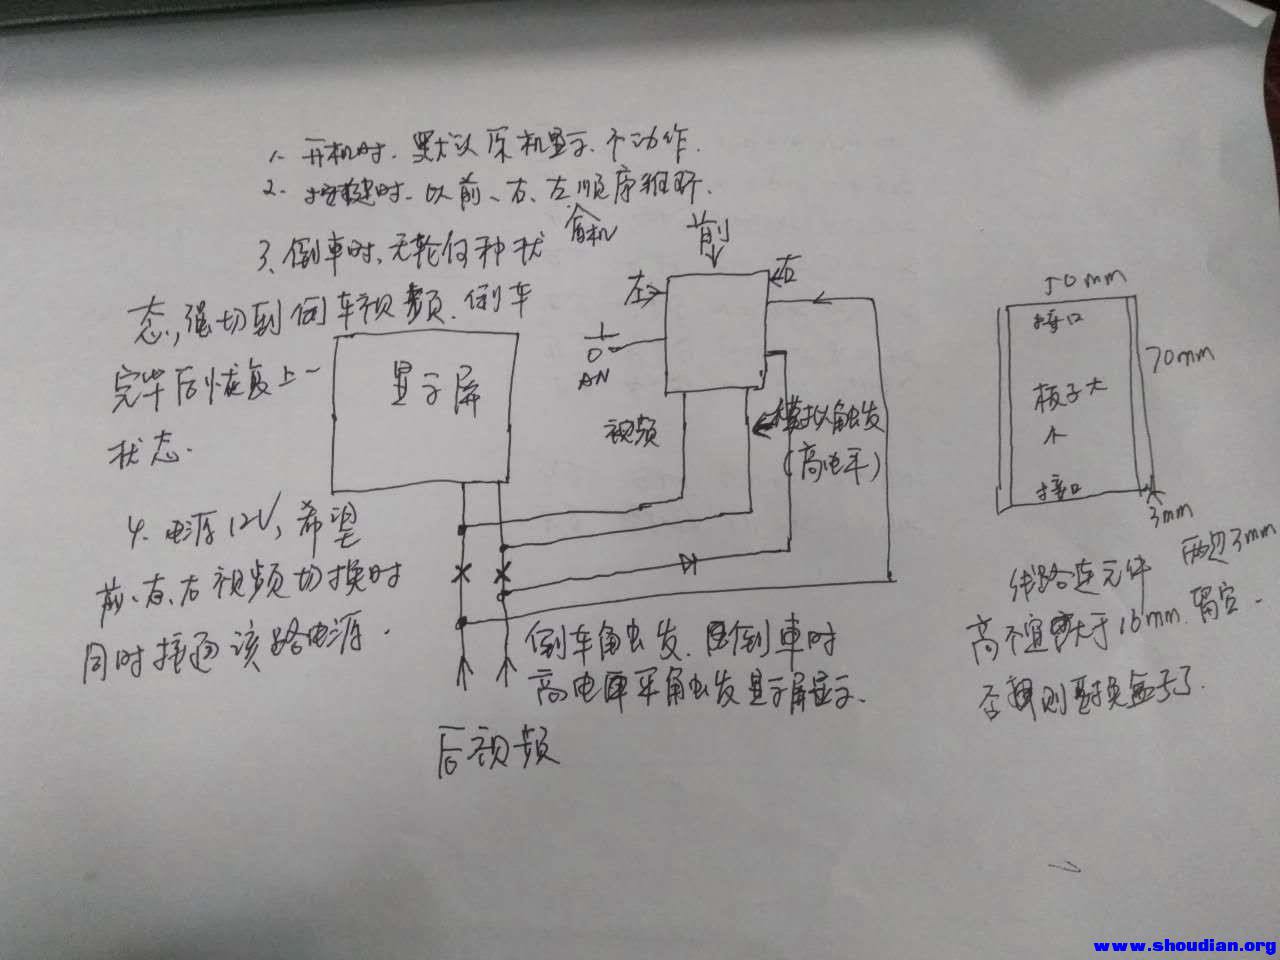 1. 开机时. 默认原机显示. 不动作.
2. 按键时. 以前、右、左顺序循环.
原机
3、倒車时、无轮何种状
态, 强切到倒车视频. 倒车
完毕后恢复上一
状态.
4. 电源12V, 希望
前、右、左视频切换时
同时接通该路电源.
前
左
右
AN
显示屏
视频
模拟触发
(高电平)
倒车触发. 倒車时
高电平触发显示屏显示.
后视频
50mm
接口
70mm
板子大
小
接口
3mm
两边3mm
留空.
线路连元件
高不宜大于16mm.
否则要换盒子了.
www.shoudian.org